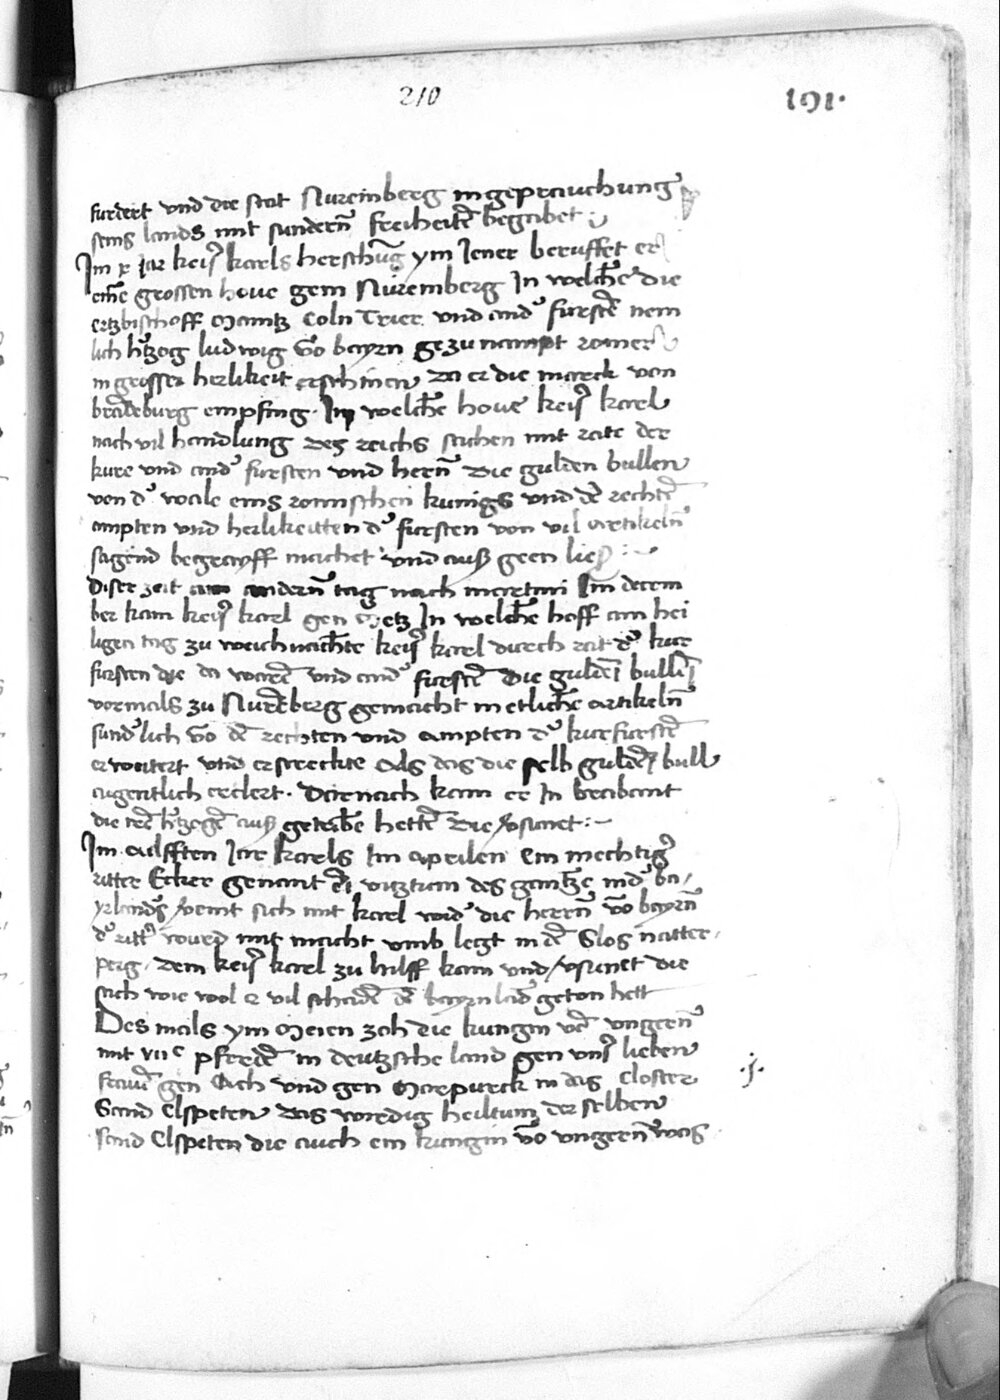 210
191.
furdert vnd die stat Nuremberg in geprauchung
seins lands mit sundern̄ freiheitē begabet
Im x iar keis͛ karls herschūg ym Jener beruffet er
eine grossen houe gem Nuremberg In welchē die
ertzbischoff Maintz Coln Trier vnd and͛ furstē nem
lich h͛tzog ludwig vō bayrn gezunampt romer
in grosser herlikeit erschinen Da er die marck von
brādeburg empfing. In welchē houe keis͛ karel
nach vil handlung des reichs sachen mit rate der
kure vnd and͛ fursten vnd hern̄ Die gulden bullen
von d͛ wale eins romischen kunigs vnd dē rechtē
ampten vnd herlikeitten d͛ fursten von vil artikeln̄
sagend begreyff machet vnd auß geen ließ :~
Diser zeit am andern̄ tag nach martini Im decem
ber kam keis͛ karel gen Metz In welchē hoff am hei
ligen tag zu weichnachtē keis͛ karel durch rat d͛ kur
fursten die da warē vnd and͛ furstē Die guldē bullē
vormals zu Nurēberg gemacht in etlichē artikeln̄
sund͛lich vō dē rechten vnd ampten d͛ kurfurstē
erweitert vnd erstreckte Als das die selb guldē bull
augentlich erclert. Darnach kam er In brabant
die irē h͛tzogē auß getribē hettē Die v͛sunet :~
Im ailfften Jare karels Im aprilen Ein mechtig͛
ritter Ecker genant ein vitztum des gantzē nid͛ ba/
yrlands v͛eint sich mit karel wid͛ die herrn̄ vō bayrn̄
d͛ ritt͛ wurd mit macht vmb legt in dē Slos natter/
perg. Dem keis͛ karel zu hilff kam vnd v͛sunet die
sach wie wol er vil schadē dē bayrnlād͛ geton hett
Des mals ym Meien zoh die kungin vō vngern̄
mit vii c pferdē in deutzsche land gen vns͛ lieben
frawē gen Ach vnd gen Marpurck in das Closter
Sand Elspeten Das wirdig heiltum der selben
sand Elspeten die auch ein kungin vō vngern̄ was
.j.